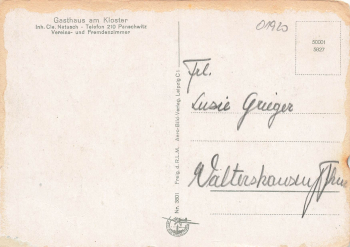 Gasthaus am Kloster
Inh. Cle. Netzsch - Telefon 210 Parschwitz
Vereins- und Fremdenzimmer
01920
Frl.
Susie Grieger
Waltershausen/Thür
Nr. 3801 Freig. d. R.L.M. Aero-Bild-Verlag, Leipzig C 1